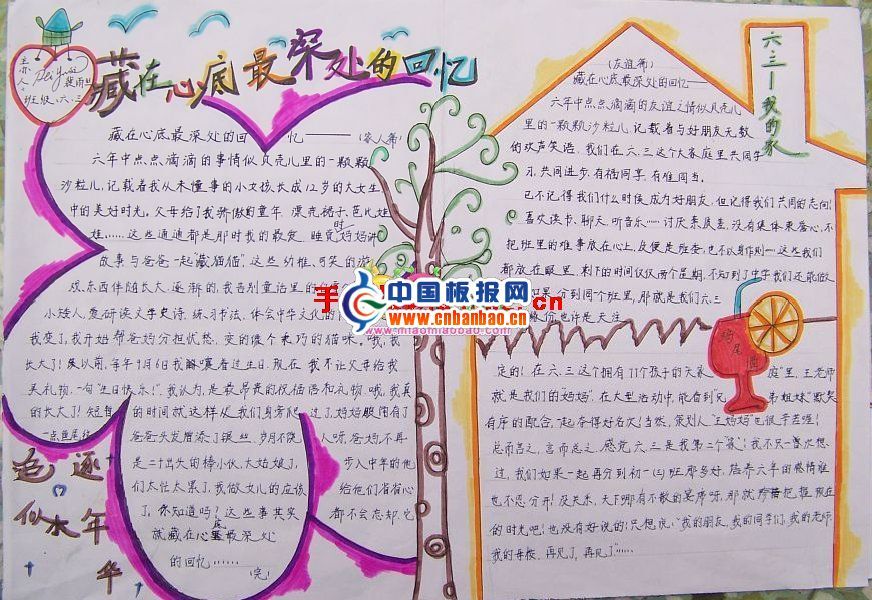 藏在心底最深处的回忆
主办人
Pei Yu
班级：六.三
藏在心底最深处的回忆——（家人篇）
六年中点点滴滴的事情似贝壳儿里的一颗颗
沙粒儿，记载着我从未懂事的小女孩长成12岁的大女生
中的美好时光。父母给了我骄傲的童年，漂亮裙子、芭比娃
娃……这些通通都是那时我的最爱，睡觉时妈妈讲
故事与爸爸一起"藏猫猫"，这些幼稚、可笑的游
戏东西伴随长大，逐渐的，我告别童话里的
小矮人，爱研读文学史诗，练习书法，体会中华文化的
我变了，我开始帮爸妈分担忧愁，变的像个乖巧的猫咪。哦，我
长大了！从以前，每年9月6日我嚷着过生日，现在我不让父母给我
买礼物，一句"生日快乐！"我认为，是最昂贵的祝福语和礼物。哦，我真
的长大了！短暂的时间就这样从我们身旁爬过了，妈妈眼角有了
一点鱼尾纹
爸爸头发增添了银丝，岁月不饶人呀，爸妈不再
是二十出头的棒小伙、大姑娘了，步入中年的他
们太忙太累了，我做女儿的应该给他们省省心
了，你知道吗？这些事其实都不会忘却，它
就藏在心底最深处
的回忆……（完）
追逐
似水年华
六·三——我的家
（友谊篇）
藏在心底最深处的回忆——
六年中点点滴滴的友谊之情似贝壳儿
里的一颗颗沙粒儿，记载着与好朋友无数
的欢声笑语，我们在六.三这个大家庭里共同学
习，共同进步，有福同享，有难同当。
已不记得我们什么时候成为好朋友，但记得我们共同的志向：
喜欢读书、聊天、听音乐……讨厌
没有集体荣誉心，不
把班里的难事放在心上，
也不以身作则……这些我们
都放在眼里，剩下的时间仅仅两个星期，不知到了中学我们还能做
如果分到同个班里，那就是我们六.三
缘份也许是天注
手
中国板报网
.cn
www.cnbanbao.cn
www.miaomiaobao.com
鸡尾酒
定的！在六.三这个拥有77个孩子的大家庭"里，王老师
就是我们的"妈妈"，在大型活动中，能看到兄弟姐妹"默契
有序的配合，一起夺得好名次！当然，策划人"王妈妈"也很辛苦喔！
总而言之，言而总之，感觉六.三是我第二个"家"！我不只一次幻想
过，我们如果一起再分到初一（三）班那多好，培养六年的感情谁
也不忍分开！没关系，天下哪有不散的宴席呀，那就珍惜把握现在
的时光吧！也没有好说的！只想说："我的朋友，我的同学们，我的老师
我的母校，再见了，再见了"……